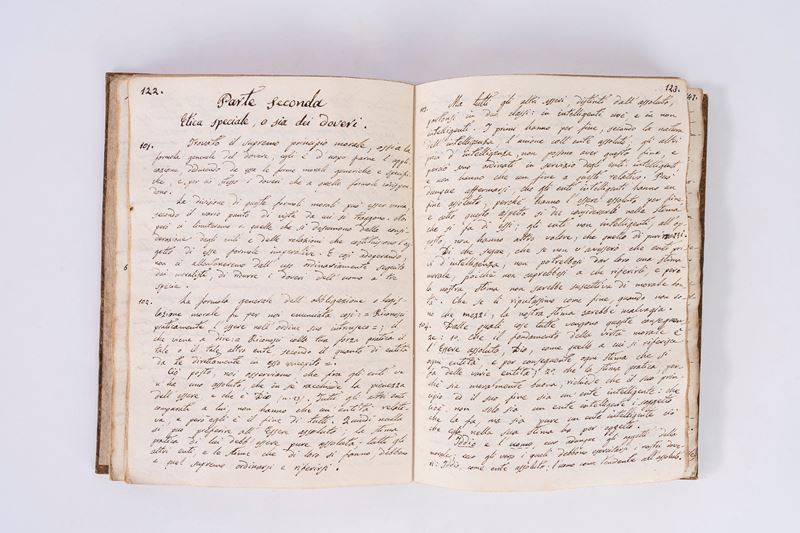 122.
Parte seconda
Etica speciale, o sia dei doveri.
101. Trovato il supremo principio morale, ossia la
formola generale del dovere, egli è d'uopo farne l'appli-
cazione deducendo da essa le forme morali generiche e specifi-
che, e, per ciò stesso i doveri che a quelle formole rispon-
dono.
La divisione di queste formole morali può esser varia,
secondo il vario punto di vista da cui si traggono. Noi
poi ci limiteremo a quelle che si desumono dalla consi-
derazione degli enti e delle relazioni che costituiscono l'og-
getto di esse formole imperative. E così adoperando,
non ci allontaneremo dall'uso ordinariamente seguito
dai moralisti, di ridurre i doveri dell'uomo a tre
specie.
102. La formola generale dell'obbligazione o legis-
lazione morale fu per noi enunciata così: « Riconosci
praticamente l'essere nell'ordine suo intrinseco »; il
che viene a dire: Riconosci colla tua forza pratica il
tale o il tale altro ente secondo il quanto di entità
da te direttamente in esso
Ciò posto, noi osserviamo che fra gli enti ve
n'ha uno assoluto, che in sè racchiude la pienezza
dell'essere e che è Dio. Tutti gli altri enti
comparati a lui, non hanno che un'entità relati-
va e però egli è il fine di tutti. Quindi
si può preferire all'Essere assoluto; la stima
pratica di lui deve essere pure assoluta: tutti gli
altri enti e la stima che di loro si fanno, debbono
a quel supremo ordinarsi e riferirsi.
123.
Ma tutti gli altri esseri, distinti dall'assoluto,
partonsi in due classi: in intelligenti cioè e in non
intelligenti. I primi hanno per fine, secondo la natura
dell'intelligenza, l'unione coll'ente assoluto; gli altri
privi d'intelligenza, non possono aver questo fine, e
perciò sono ordinati in servizio degli enti intelligenti
e non hanno che un fine a questi relativo. Può
dunque affermarsi che gli enti intelligenti hanno un
fine assoluto, perchè hanno l'essere assoluto per fine,
e sotto questo aspetto si dee considerarli nella stima
che si fa di essi; gli enti non intelligenti, all'op-
posto, non hanno altro valore, che quello di puri mezzi.
Di che segue, che se non v'avessero che enti pri-
vi d'intelligenza, non potrebbesi dar loro una stima
morale, poichè non saprebbesi a che riferirli, e però
la nostra stima non sarebbe suscettiva di morale bon-
tà. Che se li riputassimo come fine quando non so-
no che mezzi, la nostra stima sarebbe malvagia.
104. Dalle quali cose tutte vengono queste conseguen-
ze: 1°. che il fondamento della virtù morale è
l'Essere assoluto, Dio, come quello a cui si riferisce
ogni entità, e per conseguente ogni stima che si
fa delle varie entità; 2°. che la stima pratica, per-
chè sia moralmente buona, richiede che il suo prin-
cipio ed il suo fine sia un ente intelligente: che
cioè, non solo sia un ente intelligente il soggetto
che la fa, ma sia pure un ente intelligente ciò
che egli nella sua stima ha per oggetto.
Iddio e l'uomo sono adunque gli oggetti della
morale; sono gli verso i quali debbono esercitarsi i nostri dove-
ri: Iddio, come ente assoluto; l'uomo come tendente all'assoluto.